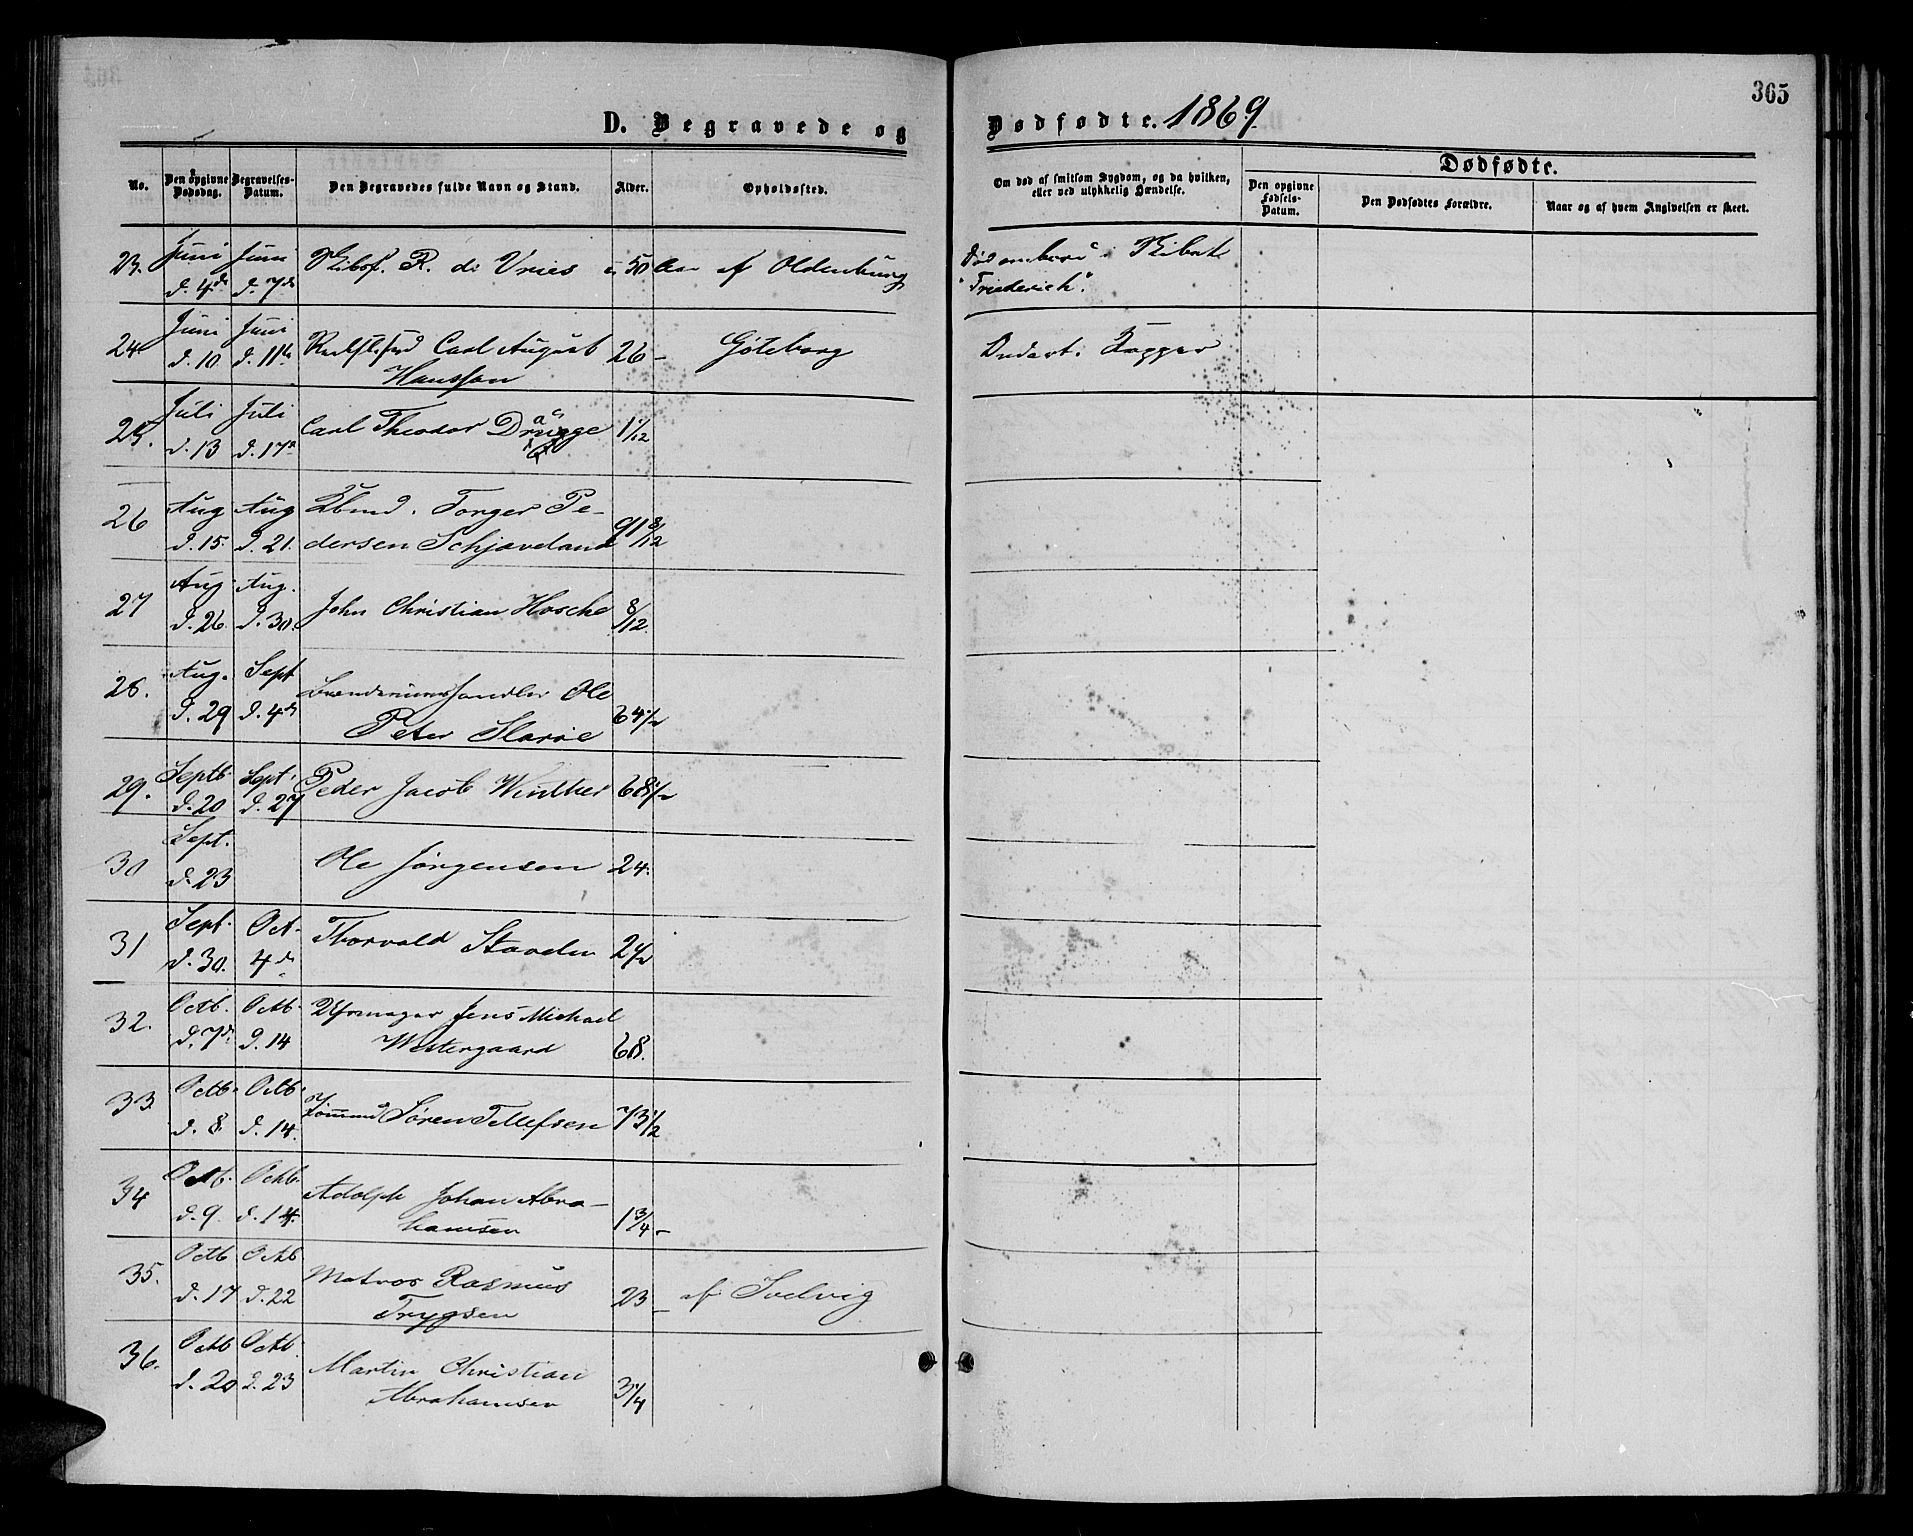 365
D. Begravede og Dødfødte. 1869.
No.
Den opgivne Dødsdag.
Begravelses-Datum.
Den Begravedes fulde Navn og Stand.
Alder.
Opholdssted.
Om død af smitsom Sygdom, og da hvilken, eller ved ulykkelig Hændelse.
Dødfødte.
Den opgivne Fødsels-Datum.
Den Dødfødtes Forældre.
Naar og af hvem Angivelsen er skeet.
23. Juni d. 4de Juni d. 7de Skibsf. R. de Vries 50 af Oldenburg Død ombord i Skibet
"Friederich".
24 Juni d. 10 Juni d. 11te Carl August
Hansson 26 - Göteborg Kopper
25. Juli d. 13 Juli d. 17de Carl Theodor 1 1/12
26 Aug d. 15. Aug d. 21. Torger Pe-
dersen Schjæveland 91 8/12
27 Aug. d. 26. Aug. d. 30. John Christian Hosche 8/12
28. Aug. d. 29 Sept d. 4de Ole
Peter Slarvie 64 1/2
29. Septb. d. 20 Sept. d. 27 Peder Jacob Winther 68 1/2
30 Sept. d. 23 Ole Jörgensen 24.
31 Sept. d. 30. Oct. 4de Thorvald 2 1/2
32. Octb. d. 7de Octb. d. 14 Uhrmager Jens Michael
Westergaard 68.
33. Octb. d. 8. Octb. d. 14. Tømmermd Søren Tellefsen 73 1/2
34 Octb. d. 9. Octb. d. 14. Adolph Johan Abra-
hamsen 1 3/4 -
35. Octb d. 17 Octb d. 22 Matros Rasmus
Trygsen 23 - af Soelvig
36. Octb d. 20 Octb. d. 23 Martin Christian
Abrahamsen 3 1/4